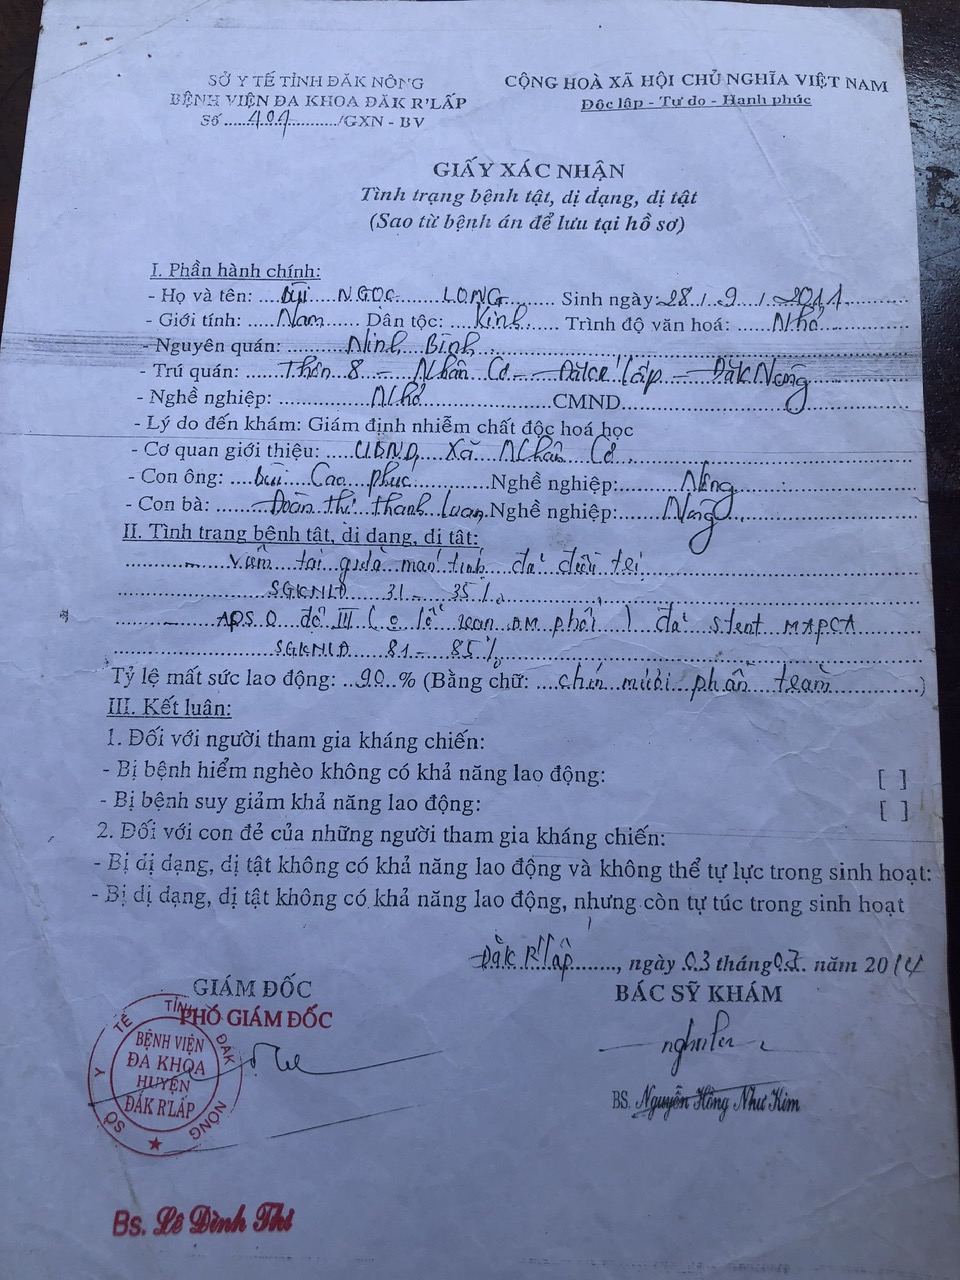 SỞ Y TẾ TỈNH ĐĂK NÔNG
BỆNH VIỆN ĐA KHOA ĐĂK R'LẤP
Số.....404.........../GXN - BV
CỘNG HOÀ XÃ HỘI CHỦ NGHĨA VIỆT NAM
Độc lập - Tự do - Hạnh phúc
GIẤY XÁC NHẬN
Tình trạng bệnh tật, dị dạng, dị tật
(Sao từ bệnh án để lưu tại hồ sơ)
I. Phần hành chính:
- Họ và tên: Bùi NGỌC LONG Sinh ngày: 28 / 9 / 2011
- Giới tính: Nam Dân tộc: Kinh Trình độ văn hoá: Nhỏ
- Nguyên quán: Ninh Bình
- Trú quán: Thôn 8 - Nhân Cơ - Đăk R'lấp - Đăk Nông
- Nghề nghiệp: Nhỏ CMND
- Lý do đến khám: Giám định nhiễm chất độc hoá học
- Cơ quan giới thiệu: UBND Xã Nhân Cơ
- Con ông: Bùi Cao Phúc Nghề nghiệp: Nông
- Con bà: Đoàn Thị Thanh Luan Nghề nghiệp: Nông
II. Tình trạng bệnh tật, dị dạng, dị tật:
- Viêm tai giữa mạn tính đã điều trị
SGKNLĐ 31 - 35%
- APSO độ III ( 0 lỗ van ĐM phổi ) đã stent MAPCA
SGKNLĐ 81 - 85%
Tỷ lệ mất sức lao động: 90 % (Bằng chữ: chín mươi phần trăm)
III. Kết luân:
1. Đối với người tham gia kháng chiến:
- Bị bệnh hiểm nghèo không có khả năng lao động: [ ]
- Bị bệnh suy giảm khả năng lao động: [ ]
2. Đối với con đẻ của những người tham gia kháng chiến:
- Bị dị dạng, dị tật không có khả năng lao động và không thể tự lực trong sinh hoạt:
- Bị dị dạng, dị tật không có khả năng lao động, nhưng còn tự túc trong sinh hoạt
Đăk R'lấp, ngày 03 tháng 07 năm 2014
GIÁM ĐỐC
PHÓ GIÁM ĐỐC
BÁC SỸ KHÁM
SỞ Y TẾ TỈNH ĐĂK NÔNG
BỆNH VIỆN
ĐA KHOA
HUYỆN
ĐĂK R'LẤP
BS. Nguyễn Hồng Như Kim
Bs. Lê Đình Thi